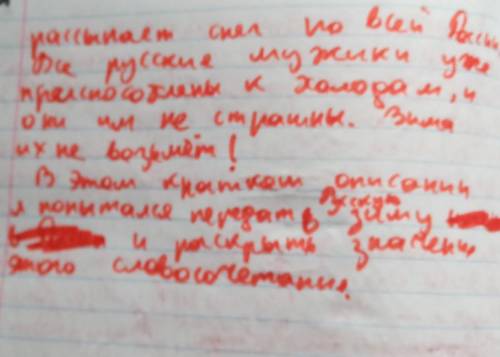 рассыпает снег по всей России
Все русские мужики уже
приспособлены к холодам, и
они им не страшны. Зима
их не возьмёт!
В этом кратком описании
я попытался передать зиму
и раскрыть значение
этого словосочетания.